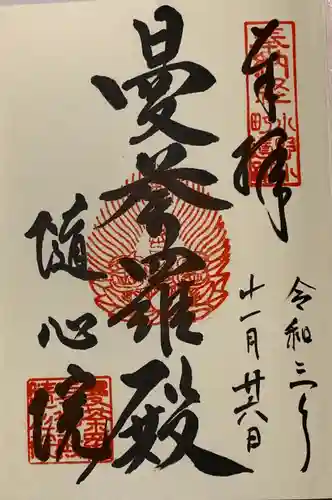 奉拝
奉納経
令和三年
十一月廿六日
曼荼羅殿
隨心院